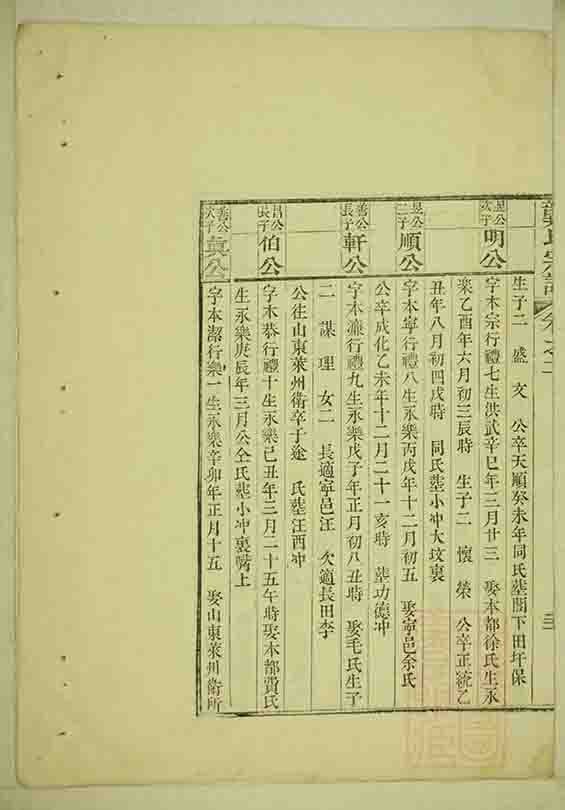 氏宗譜 卷之二
生子二 盛 文 公卒天順癸未年同氏塟閣下田圩保
昱公次子 明公 字本宗行禮七生洪武辛巳年三月廿三 娶本都徐氏生永
樂乙酉年六月初三辰時 生子二 懷 榮 公卒正統乙
丑年八月初四戌時 同氏塟小冲大坟裏
昱公三子 順公 字本寧行禮八生永樂丙戌年十二月初五 娶寧邑余氏
公卒成化乙未年十二月二十一亥時 塟功德冲
善公長子 軒公 字本濂行禮九生永樂戊子年正月初八丑時 娶毛氏生子
二 謀 理 女二 長適寧邑汪 次適長田李
公往山東萊州衛卒于途 氏塟汪西冲
昌公長子 伯公 字本恭行禮十生永樂己丑年三月二十五午時娶本都費氏
生永樂庚辰年三月公仝氏塟小冲裏嘴上
善公次子 眞公 字本潔行樂一生永樂辛卯年正月十五 娶山東萊州衛所